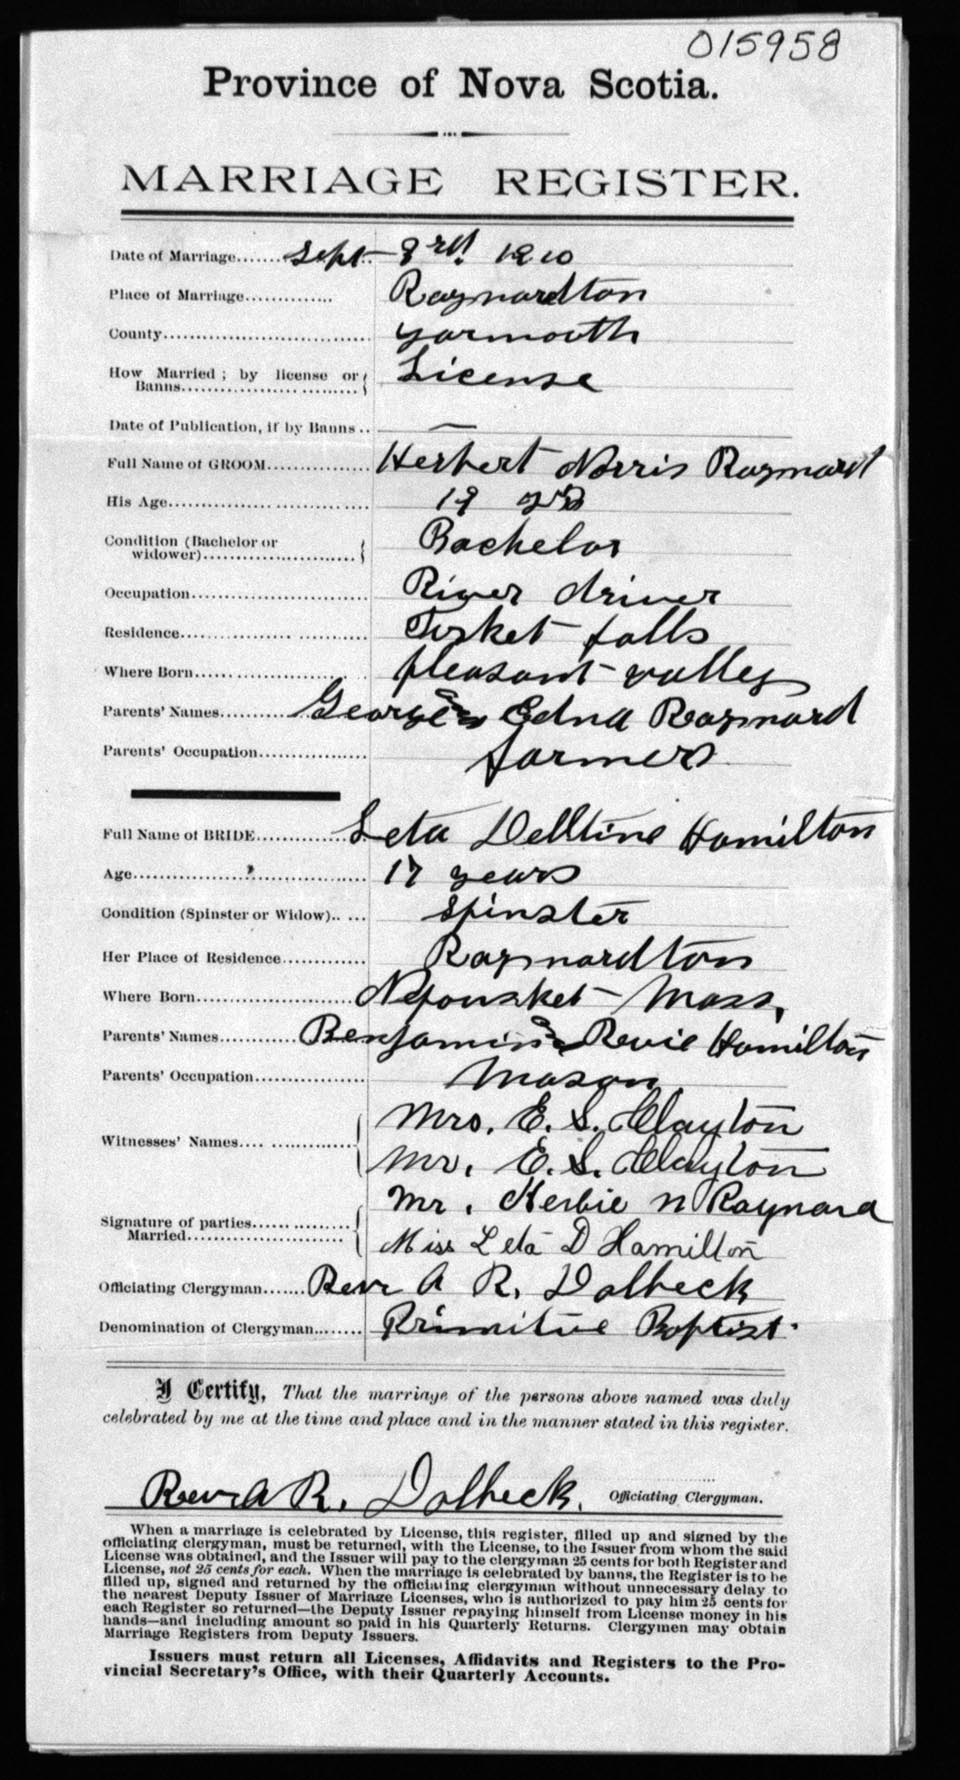 015958
Province of Nova Scotia.
MARRIAGE REGISTER.
Date of Marriage....... Sept 3rd. 1910
Place of Marriage.............. Raynardton
County.................................. yarmouth
How Married ; by license or Banns........................... License
Date of Publication, if by Banns .. —
Full Name of GROOM................ Herbert Norris Raynard
His Age.................................. 19 yrs
Condition (Bachelor or widower)........................... Bachelor
Occupation.............................. River driver
Residence................................ Tusket falls
Where Born............................. pleasant valley
Parents' Names........... George & Edna Raynard
Parents' Occupation.................. farmer
Full Name of BRIDE............. Leta Delltine Hamilton
Age........................................ 17 years
Condition (Spinster or Widow)...... Spinster
Her Place of Residence............. Raynardton
Where Born........................... Neponsket Mass,
Parents' Names............ Benjamin & Revie Hamilton
Parents' Occupation.................. Mason
Witnesses' Names.... ............... Mrs. E. S. Clayton
Mr. E. S. Clayton
Signature of parties Married....................... Mr. Herbie N Raynard
Miss Leta D Hamilton
Officiating Clergyman....... Rev A R. Dolbeck
Denomination of Clergyman......... Primitive Baptist.
I Certify, That the marriage of the persons above named was duly
celebrated by me at the time and place and in the manner stated in this register.
Rev A R. Dolbeck. Officiating Clergyman.
When a marriage is celebrated by License, this register, filled up and signed by the
officiating clergyman, must be returned, with the License, to the Issuer from whom the said
License was obtained, and the Issuer will pay to the clergyman 25 cents for both Register and
License, not 25 cents for each. When the marriage is celebrated by banns, the Register is to be
filled up, signed and returned by the officiating clergyman without unnecessary delay to
the nearest Deputy Issuer of Marriage Licenses, who is authorized to pay him 25 cents for
each Register so returned—the Deputy Issuer repaying himself from License money in his
hands—and including amount so paid in his Quarterly Returns. Clergymen may obtain
Marriage Registers from Deputy Issuers.
Issuers must return all Licenses, Affidavits and Registers to the Pro-
vincial Secretary's Office, with their Quarterly Accounts.